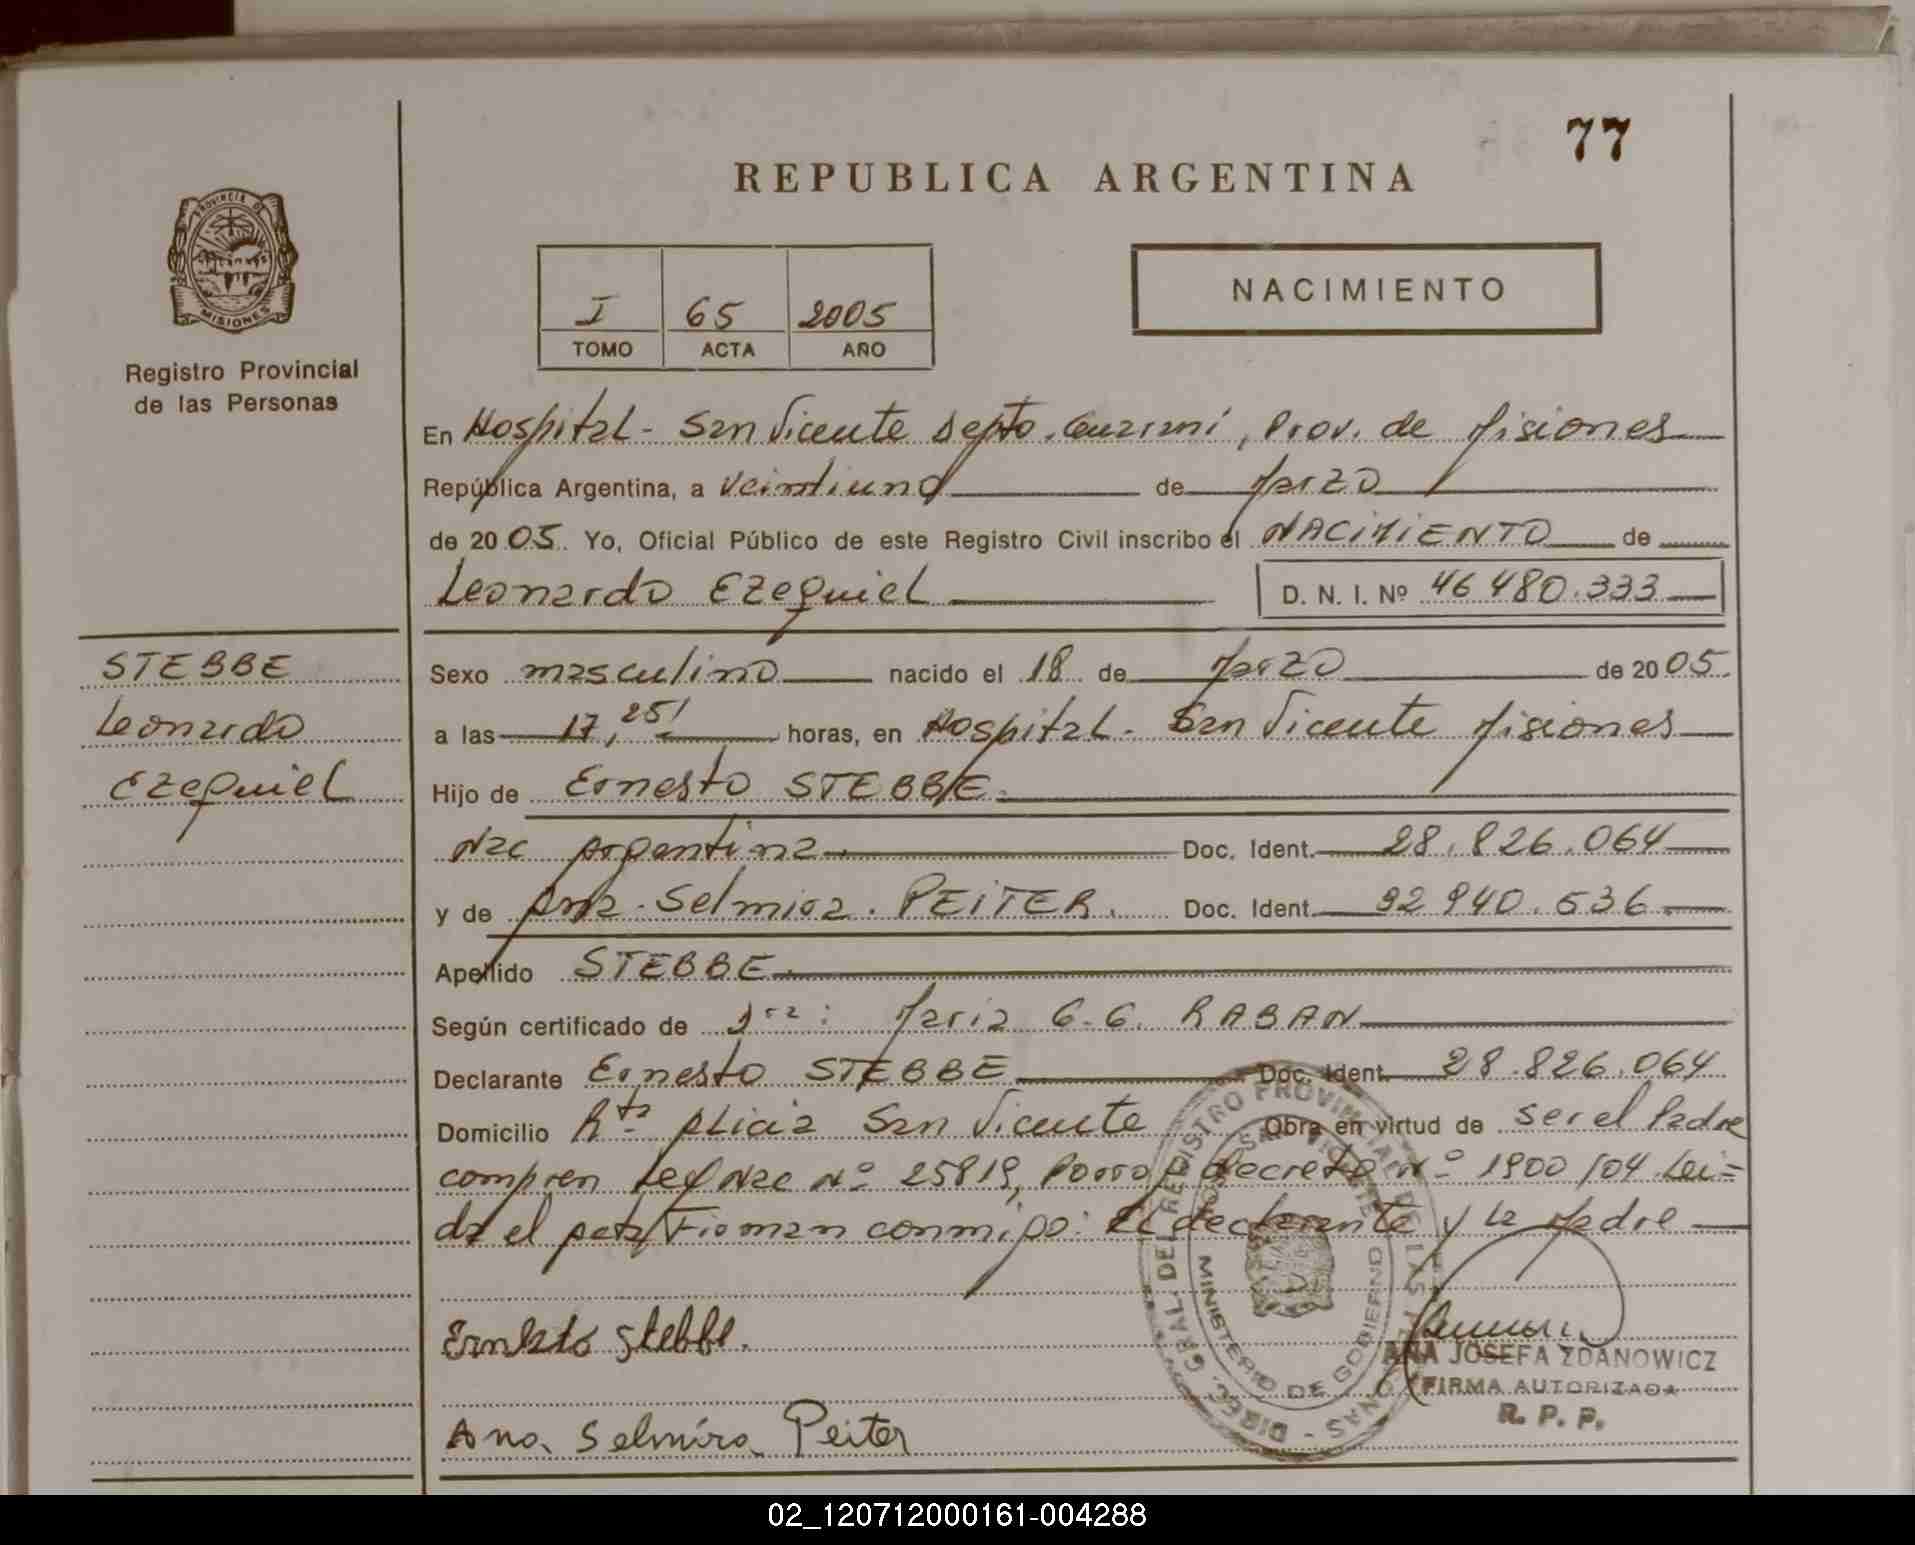 77
REPUBLICA ARGENTINA
PROVINCIA DE
MISIONES
Registro Provincial
de las Personas
I 65 2005
TOMO ACTA AÑO
NACIMIENTO
En Hospital - San Vicente Depto. Guarani, Prov. de Misiones
República Argentina, a veintiuno de Marzo
de 2005. Yo, Oficial Público de este Registro Civil inscribo el NACIMIENTO de
Leonardo Ezequiel D. N. I. Nº 46 480.333
STEBBE
Leonardo
Ezequiel
Sexo masculino nacido el 18 de Marzo de 2005.
a las 17, 25' horas, en Hospital - San Vicente Misiones
Hijo de Ernesto STEBBE.
Nac Argentina Doc. Ident. 28.826.064
y de Ana - Selmira. PEITER. Doc. Ident. 92 940.636
Apellido STEBBE
Según certificado de Dra: Maria G. G. RABAN
Declarante Ernesto STEBBE Doc. Ident. 28.826.064
Domicilio Rta Alicia San Vicente Obra en virtud de ser el Padre
compren Leq Nac Nº 25819, Porro decreto Nº 1900/04 Lei=
da el acta Firman conmigo: El declarante y la Madre
Ernesto Stebbe.
Ana Selmira Peiter
DIREC. GRAL. DEL REGISTRO PROVINCIAL DE LAS PERSONAS
SAN VICENTE
MINISTERIO DE GOBIERNO
ANA JOSEFA ZDANOWICZ
FIRMA AUTORIZADA
R. P. P.
02_120712000161-004288